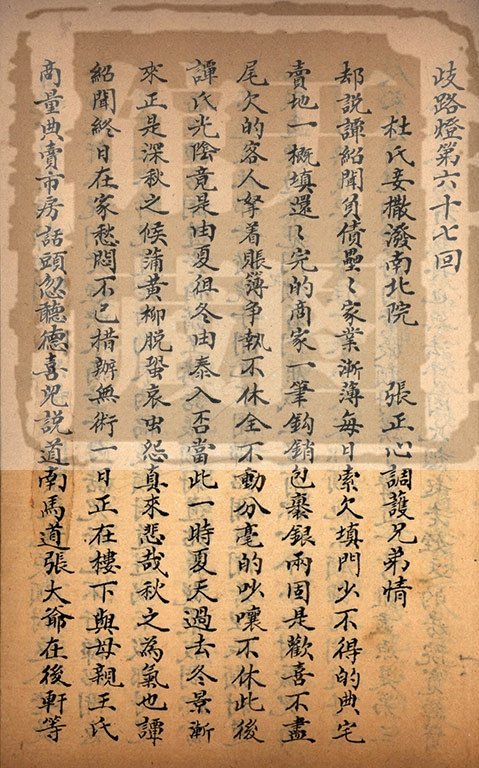 歧路燈第六十七回
杜氏妾撒潑南北院 張正心調護兄弟情
却說譚紹聞負債壘〻家業漸薄每日索欠填門少不得的典宅
賣地一概填還〻完的商家一筆鈎銷包裹銀兩固是歡喜不盡
尾欠的客人拏着賬簿争執不休全不動分毫的吵嚷不休此後
譚氏光陰竟是由夏徂冬由泰入否當此一時夏天過去冬景漸
來正是深秋之候蒲黄柳脱蛩哀虫怨真來悲哉秋之為氣也譚
紹聞終日在家愁悶不已措辦無術一日正在樓下與母親王氏
商量典賣市房話頭忽聽德喜児説道南馬道張大爺在後軒等